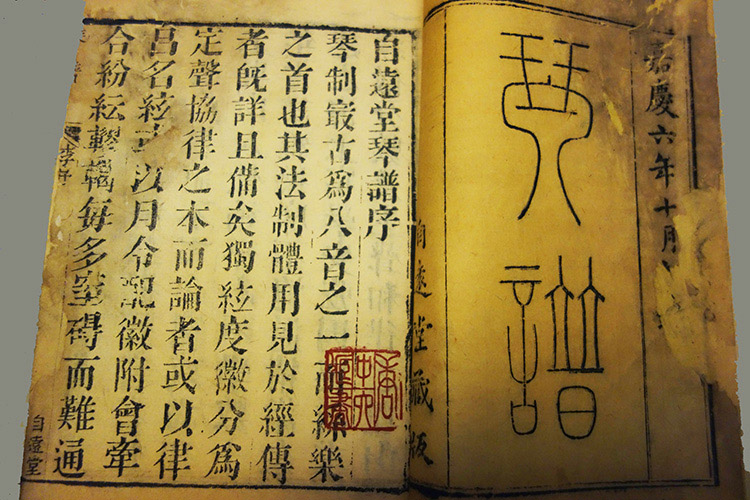 嘉慶六年十月
琴譜
自遠堂藏版
自遠堂琴譜序
琴制最古為八音之一而絲樂
之首也其法制體用見於經傳
者既詳且備矣獨絃度徽分為
定聲協律之本而論者或以律
呂名絃或以月令配徽附會牽
合紛紜轇轕每多窒碍而難通
自遠堂